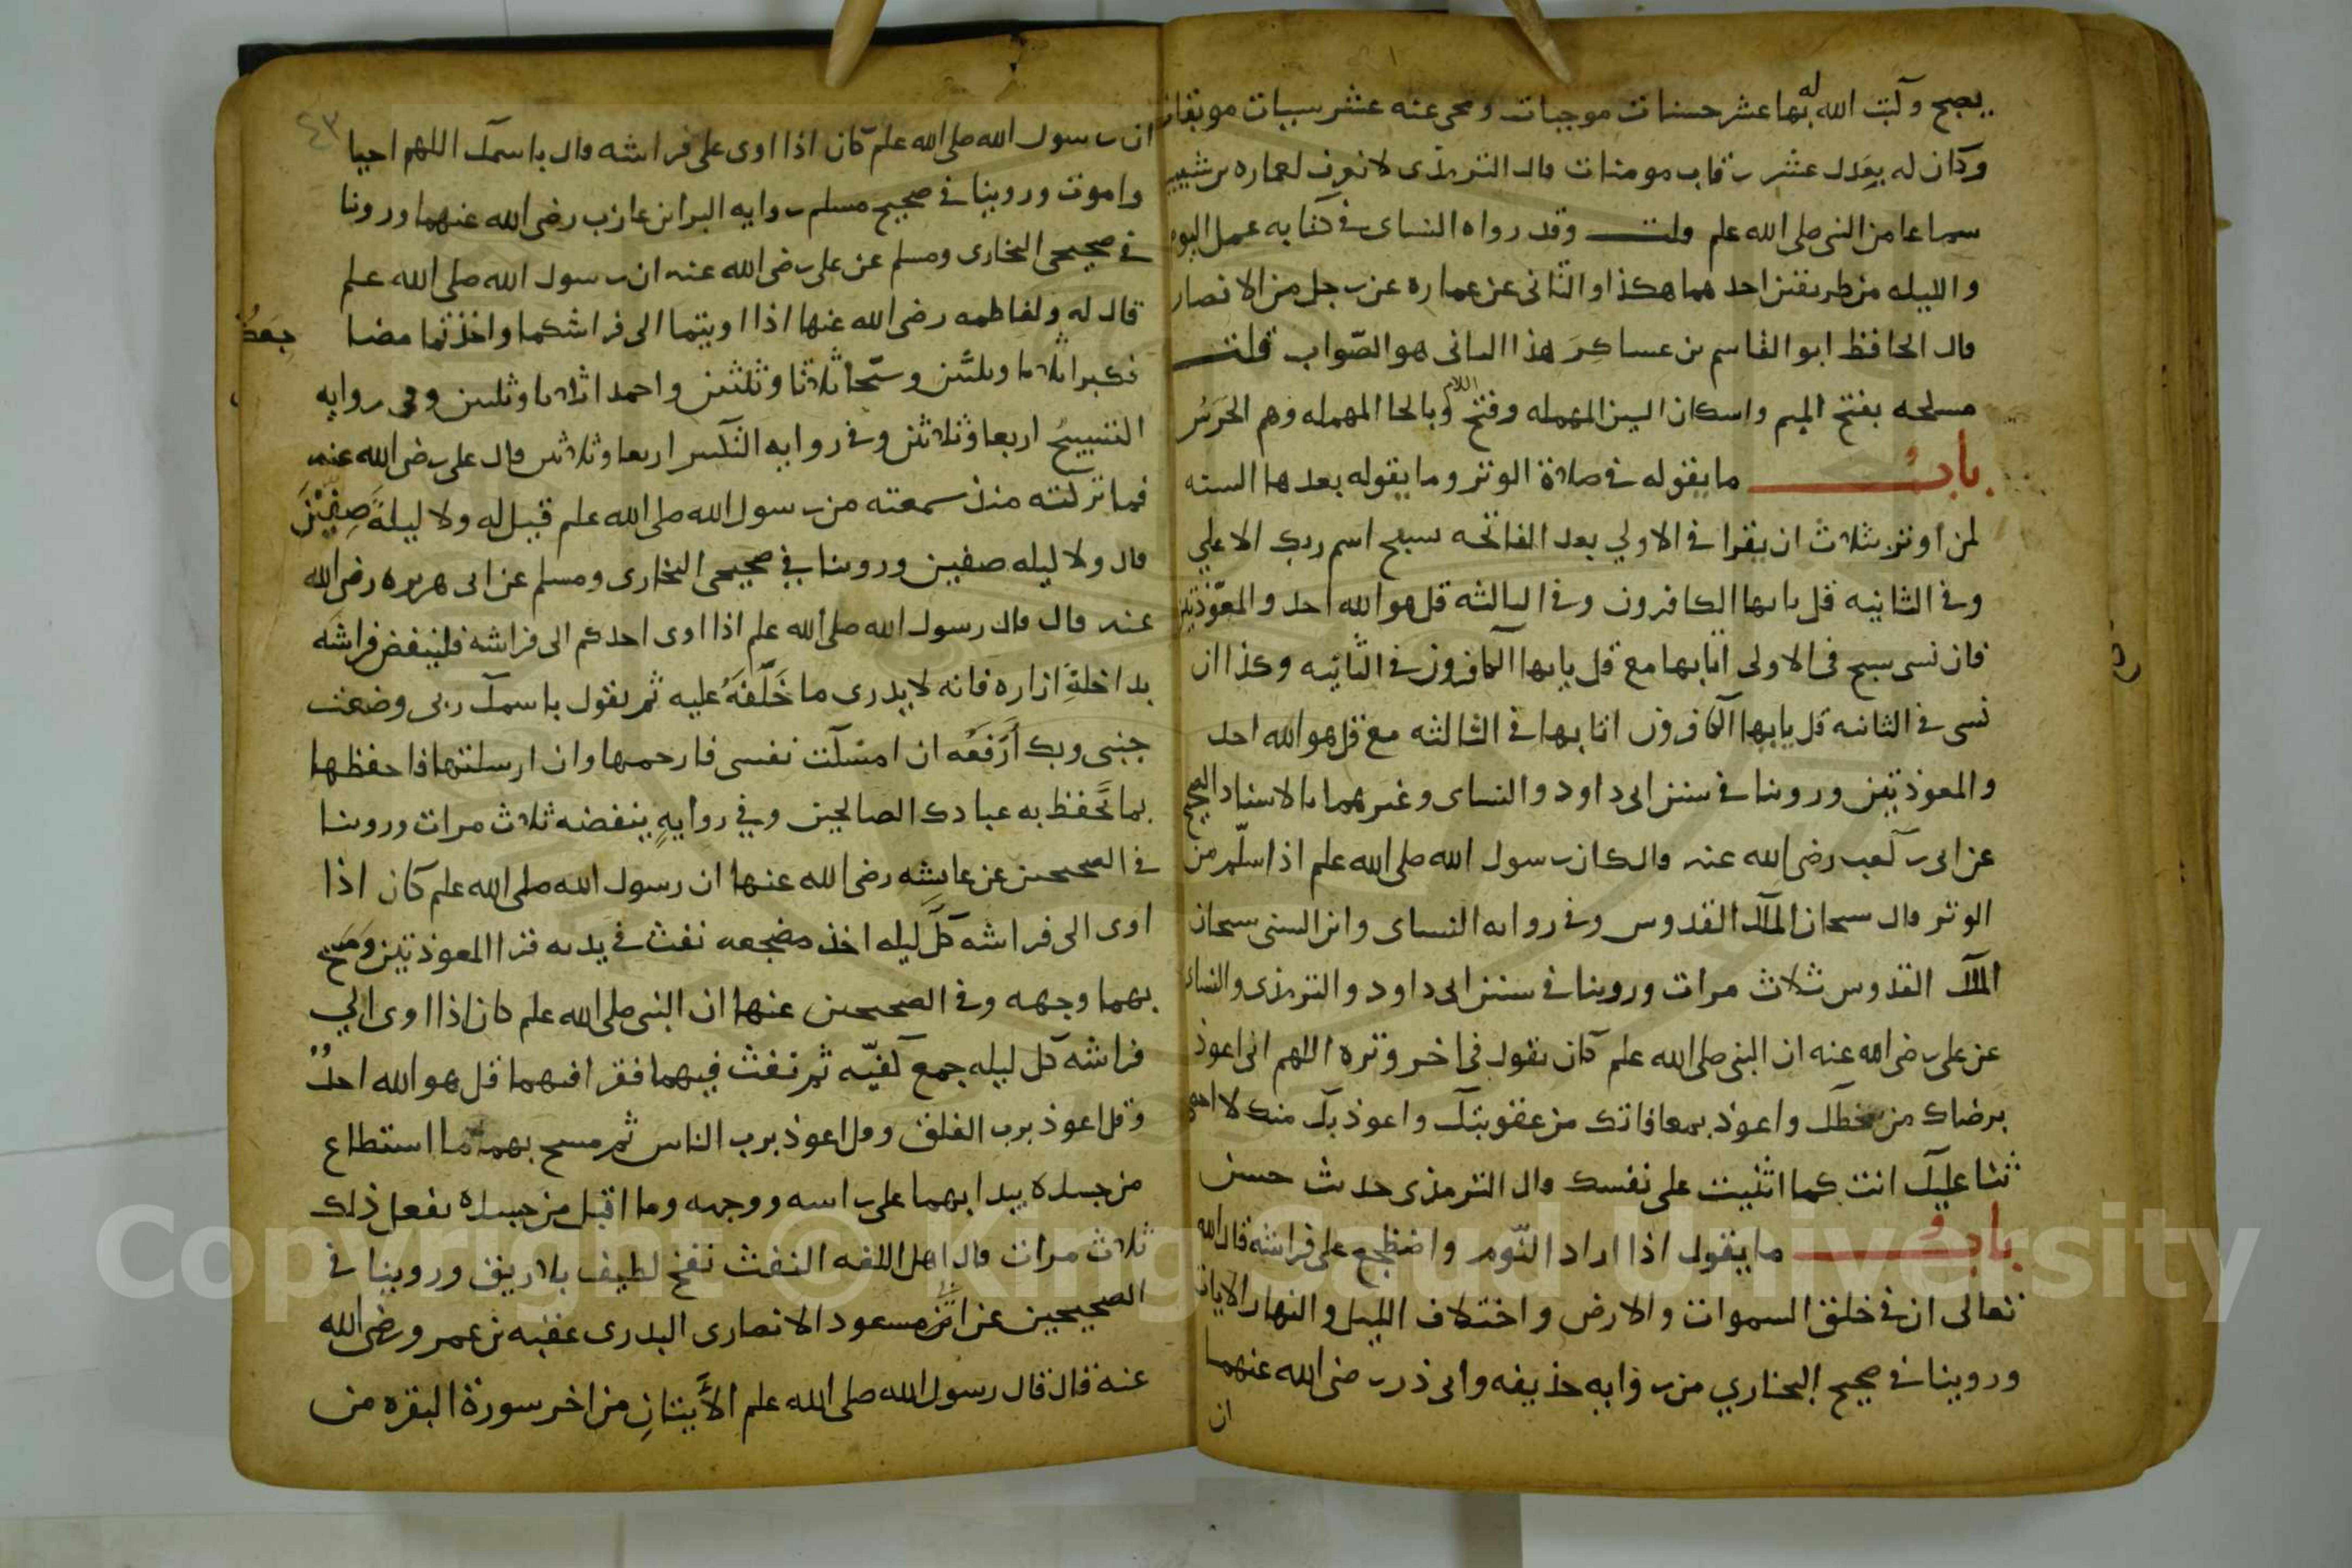 يصبح وكتب الله له بها عشر حسنات موجبات ومحى عنه عشر سيات موبقات
وكان له بعدل عشر رقاب مومنات قال الترمذى لا نعرف لعماره بن شبيب
سماعا من النبى صلى الله علم قلت وقد رواه النساى فى كتابه عمل اليوم
والليله من طريقين احدهما هكذا والثانى عن عماره عن رجل من الانصار
قال الحافظ ابو القاسم بن عساكر هذا الثانى هو الصّواب قلت
مسلحه بفتح الميم واسكان السين المهمله وفتح اللام وبالحا المهمله وهم الحَرَسُ
بابُ ما يقوله فى صلاة الوتر وما يقوله بعدها السنه
لمن اوتر بثلاث ان يقرا فى الاولي بعد الفاتحه سبح اسم ربك الاعلي
وفى الثانيه قل يايها الكافرون وفى الثالثه قل هو الله احد والمعوّذتين
فان نسى سبح فى الاولى اتا بها مع قل يايها الكافرون فى الثانيه وكذا ان
نسى فى الثانيه قل يايها الكافرون اتا بها فى الثالثه مع قل هو الله احد
والمعوذتين وروينا فى سنن ابى داود والنساى وغيرهما بالاسناد الصحيح
عن ابى بن كعب رضى الله عنه قال كان رسول الله صلى الله علم اذا سلّم من
الوتر قال سبحان الملك القدوس وفى روايه النساى وابن السنى سبحان
الملك القدوس ثلاث مرات وروينا فى سنن ابى داود والترمذى والنساى
عن على رضى الله عنه ان النبى صلى الله علم كان يقول فى اخر وتره اللهم انى اعوذ
برضاك من سخطك واعوذ بمعافاتك من عقوبتك واعوذ بك منك لا احصى
ثنا عليك انت كما اثنيت على نفسك قال الترمذى حديث حسن
بابُ ما يقول اذا اراد النّوم واضطجع على فراشه قال الله
تعالى ان فى خلق السموات والارض واختلاف الليل والنهار الايات
وروينا فى صحيح البخاري من روايه حذيفه وابى ذر رضى الله عنهما
ان
٤٣
ان رسول الله صلى الله علم كان اذا اوى على فراشه قال باسمك اللهم احيا
واموت وروينا فى صحيح مسلم روايه البرا بن عازب رضى الله عنهما وروينا
فى صحيحى البخارى ومسلم عن على رضى الله عنه ان رسول الله صلى الله علم
قال له ولفاطمه رضى الله عنها اذا اويتما الى فراشكما واخذتما مضا
جعكُ
فكبرا ثلاثا وثلثين وسبّحا ثلاثا وثلثين واحمدا ثلاثا وثلثين وفى روايه
التسبيحُ اربعا وثلاثين وفى روايه التكبير اربعا وثلاثين قال على رضى الله عنه
فما تركته منذ سمعته من رسول الله صلى الله علم قيل له ولا ليلةَ صِفِّيْنَ
قال ولا ليله صفين وروينا في صحيحى البخارى ومسلم عن ابى هريره رضى الله
عنه قال قال رسول الله صلى الله علم اذا اوى احدكم الى فراشه فلينفض فراشه
بداخلةِ ازاره فانه لا يدرى ما خَلَّفَهُ عليه ثم يقول باسمك ربى وضعت
جنبى وبك اَرْفَعُه ان امسكت نفسى فارحمها وان ارسلتها فاحفظها
بما تَحفظ به عبادك الصالحين وفي روايةٍ ينفضه ثلاث مرات وروينا
فى الصحيحين عن عايشه رضى الله عنها ان رسول الله صلى الله علم كان اذا
اوى الى فراشه كلَّ ليله اخذ مضجعه نفث فى يديه قرا المعوذتين وَمَسَحَ
بهما وجهه وفى الصحيحين عنها ان النبى صلى الله علم كان اذا اوى الي
فراشه كل ليله جمع كفيّه ثم نفث فيهما فقرا فيهما قل هو الله احدٌ
وقل اعوذ برب الفلق وقل اعوذ برب الناس ثم مسح بهما ما استطاع
من جسده يبدا بهما على راسه ووجهه وما اقبل من جسده يفعل ذلك
ثلاث مرات قال اهل اللغه النفث نفخ لطيف بلا ريق وروينا فى
الصحيحين عن ابى مسعود الانصارى البدرى عقبه بن عمرو رضى الله
عنه قال قال رسول الله صلى الله علم الأيتانِ من اخر سورة البقره من
Copyright © King Saud University